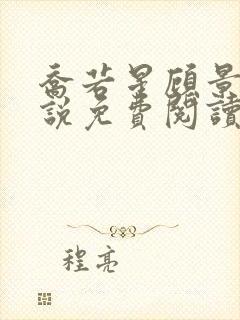 喬若星顧景
說免費閱讀
程亮